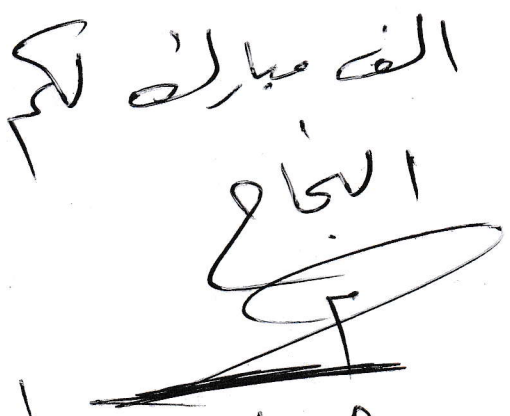 الف مبارك لكم
النجاح